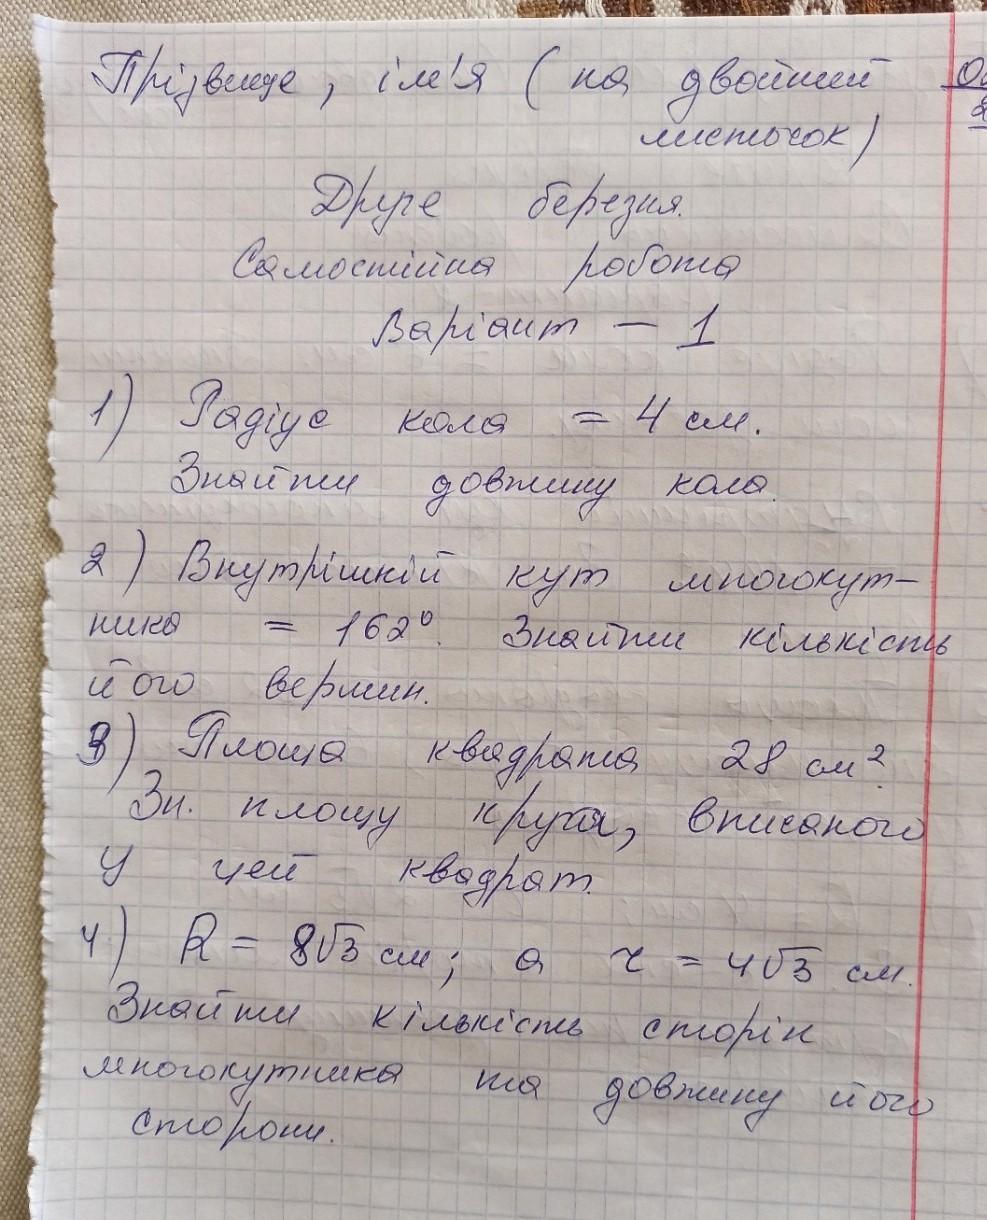 Прізвище, ім'я (на двойний
листочок)
Друге березня.
Самостійна робота
Варіант – 1
1) Радіус кола = 4 см.
Знайти довжину кола.
2) Внутрішній кут многокут-
ника = 162°. Знайти кількість
його вершин.
3) Площа квадрата 28 см².
Зн. площу круга, вписаного
у цей квадрат.
4) R = 8√3 см; а r = 4√3 см.
Знайти кількість сторін
многокутника та довжину його
сторони.